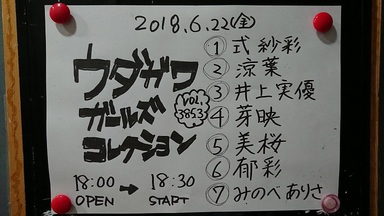 2018.6.22(金)
ウダガワ
ガールズ
コレクション
VOL.
385.3
18:00 → 18:30
OPEN START
① 式 紗彩
② 涼葉
③ 井上実優
④ 芽映
⑤ 美桜
⑥ 郁彩
⑦ みのべありさ